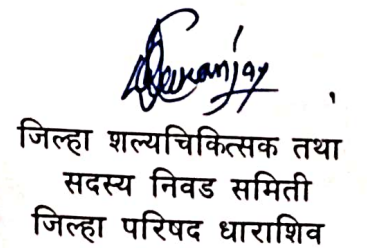 जिल्हा शल्यचिकित्सक तथा
सदस्य निवड समिती
जिल्हा परिषद धाराशिव